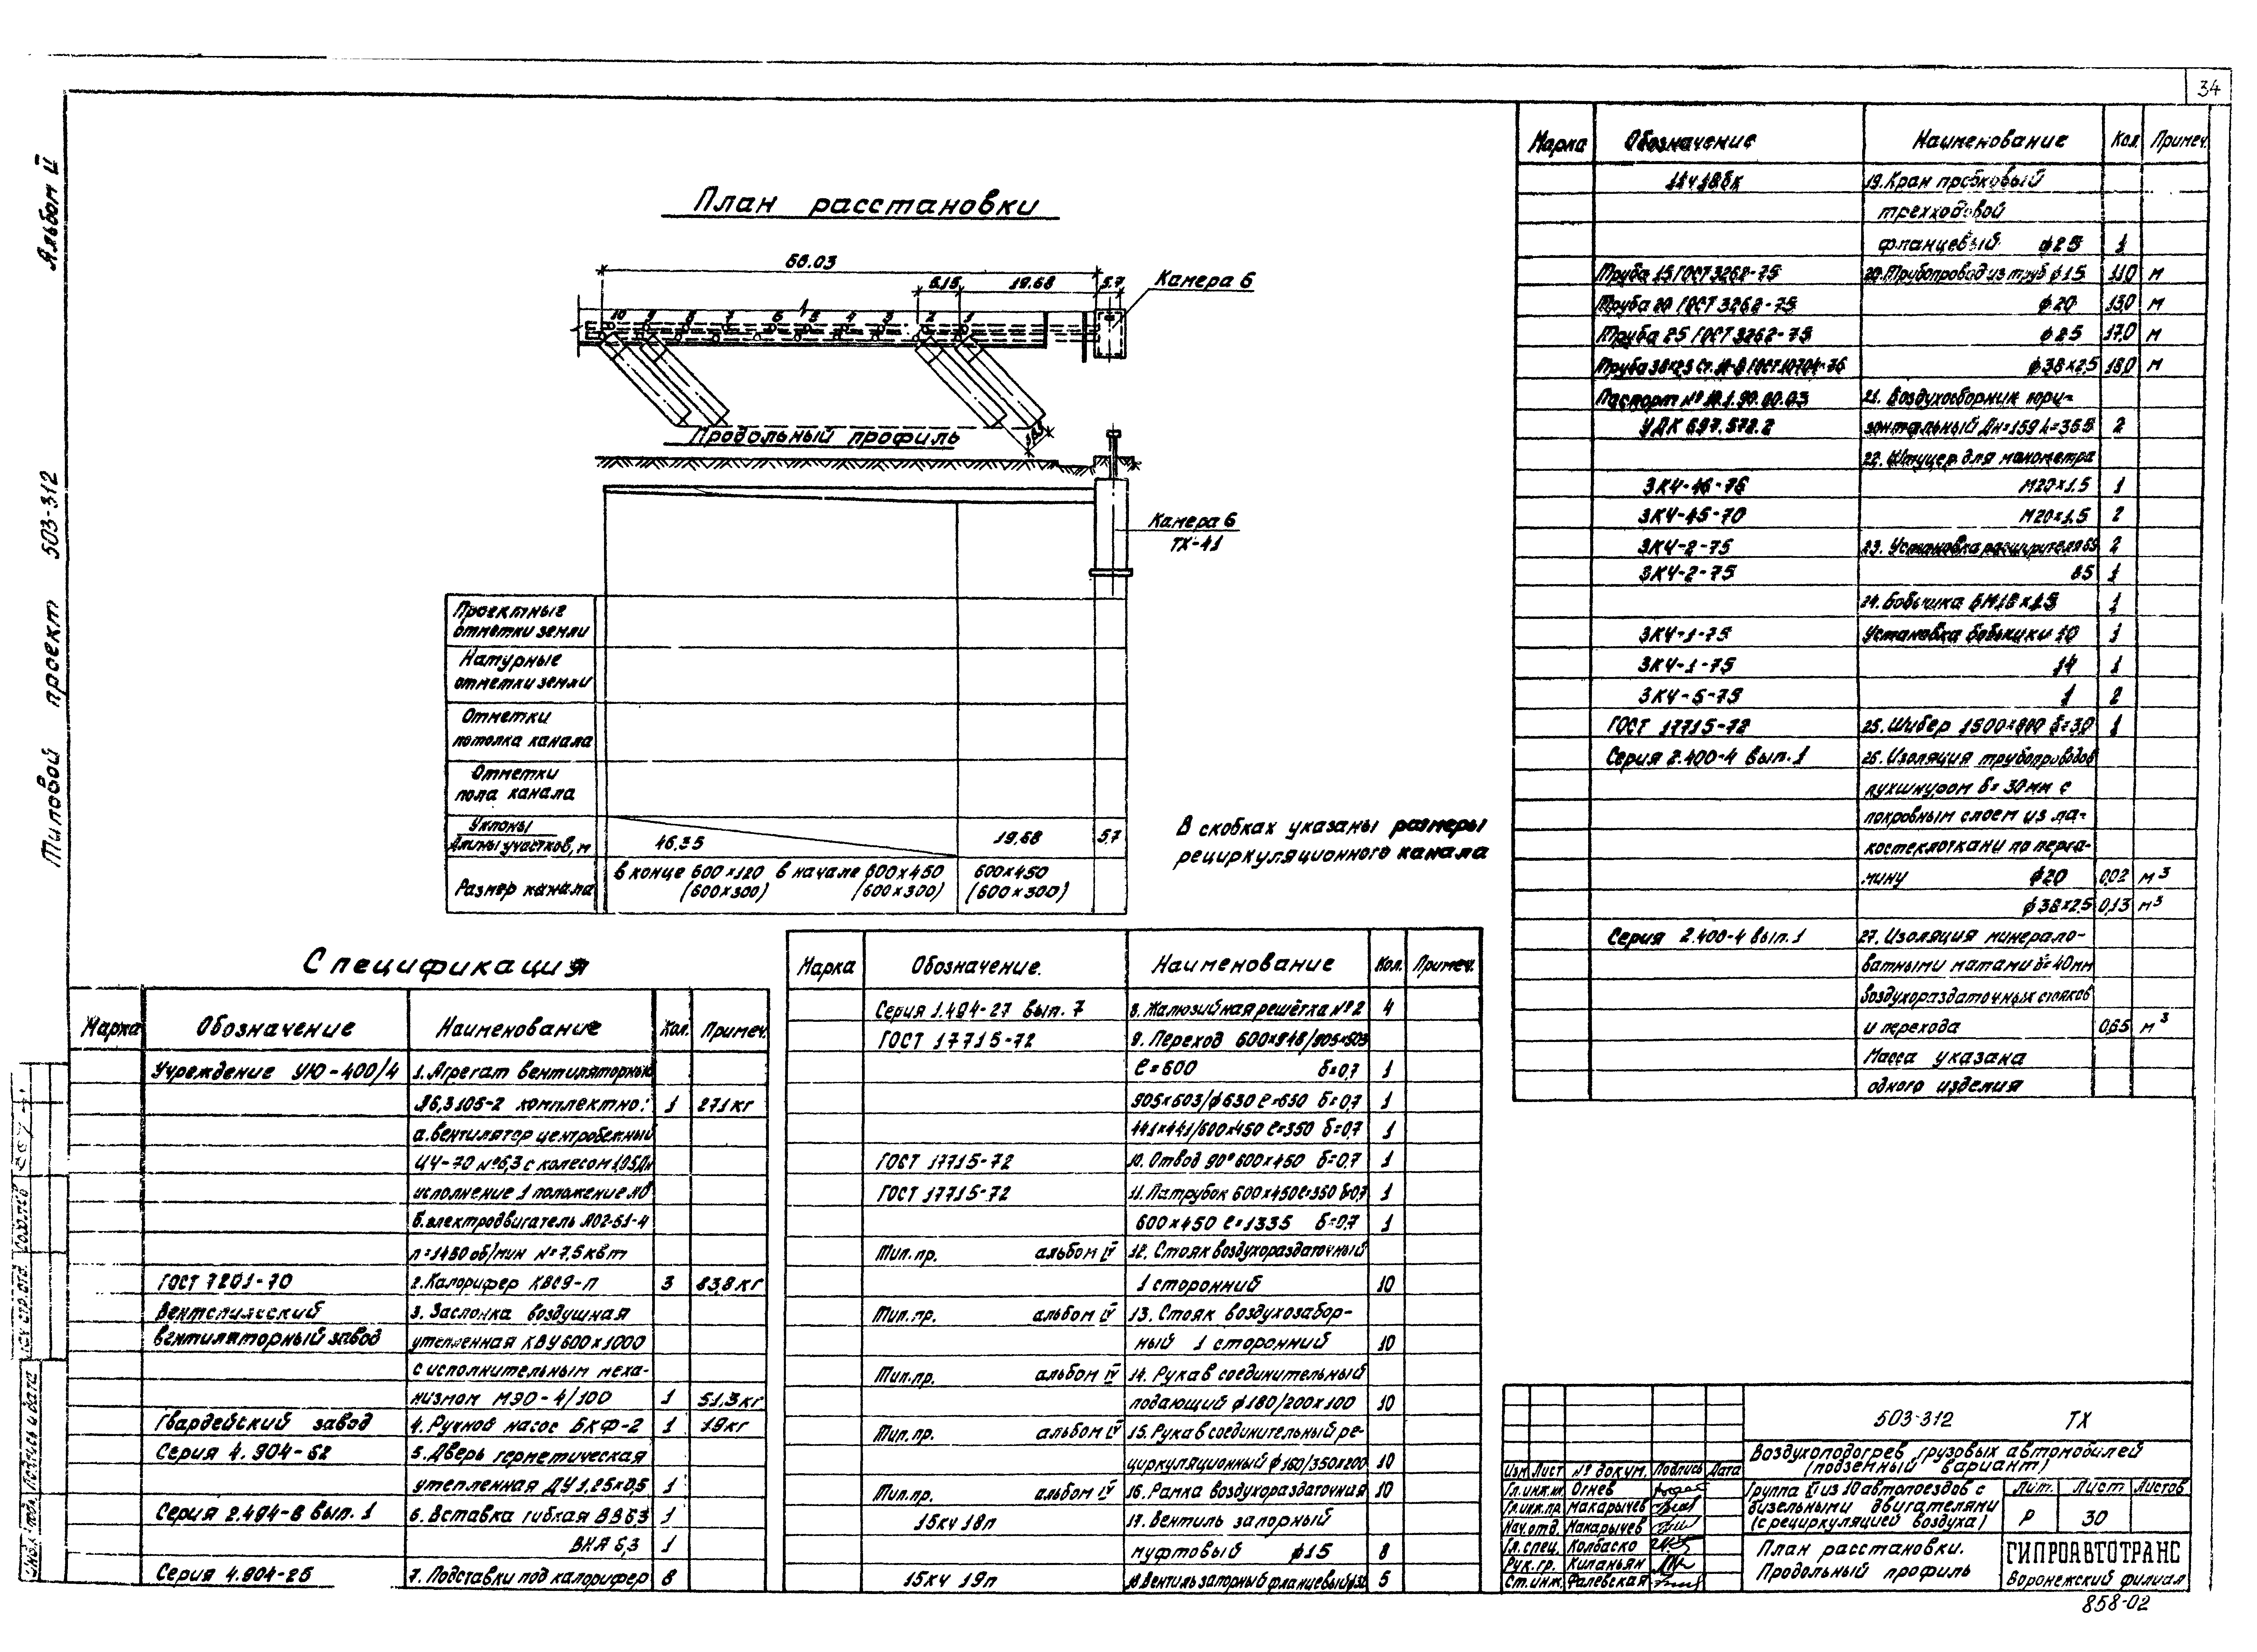 34
Альбом II
Типовой проект 503-312
План расстановки
66.03
6.15
19.68
5.7
Камера 6
10 9 8 7 6 5 4 3 2 1
Продольный профиль
Камера 6
ТХ-41
Проектные
отметки земли
Натурные
отметки земли
Отметки
потолка канала
Отметки
пола канала
Уклоны
Длины участков, м
46.35
19.68
5.7
Размер канала
в конце 600×120 в начале 600×450 600×450
(600×300) (600×300) (600×300)
В скобках указаны размеры
рециркуляционного канала
Спецификация
Марка Обозначение Наименование Кол. Примеч.
Учреждение УЮ-400/4 1. Агрегат вентиляторный
А6,3105-2 комплектно: 1 271 кг
а. вентилятор центробежный
Ц4-70 №6,3 с колесом 1,05Дн
исполнение 1 положение
б. электродвигатель А02-51-4
n=1450 об/мин N=7,5 квт
ГОСТ 7201-70 2. Калорифер КВС9-П 3 83,8 кг
Вентспилсский 3. Заслонка воздушная
вентиляторный завод утепленная КВУ600×1000
с исполнительным меха-
низмом МЭО-4/100 1 51,3 кг
Гвардейский завод 4. Ручной насос БКФ-2 1 19 кг
Серия 4.904-62 5. Дверь герметическая
утепленная ДУ 1.25×0,5 1
Серия 2.494-8 вып. 1 6. Вставка гибкая ВВ 6,3 1
ВНА 6,3 1
Серия 4.904-25 7. Подставки под калорифер 8
Марка Обозначение. Наименование Кол. Примеч.
Серия 1.494-27 вып. 7 8. Жалюзийная решётка №2 4
ГОСТ 17715-72 9. Переход
ℓ=600 δ=0,7 1
905×603/ф630 ℓ=650 δ=0,7 1
441×441/600×450 ℓ=350 δ=0,7 1
ГОСТ 17715-72 10. Отвод 90° 600×450 δ=0,7 1
ГОСТ 17715-72 11. Патрубок 600×450 ℓ=350 δ=0,7 1
600×450 ℓ=1335 δ=0,7 1
Тип. пр. альбом IV 12. Стояк воздухораздаточный
1 сторонний 10
Тип. пр. альбом IV 13. Стояк воздухозабор-
ный 1 сторонний 10
Тип. пр. альбом IV 14. Рукав соединительный
подающий ф180/200×100 10
Тип. пр. альбом IV 15. Рукав соединительный ре-
циркуляционный ф160/350×200 10
Тип. пр. альбом IV 16. Рамка воздухораздаточная 10
15кч 18п 17. Вентиль запорный
муфтовый ф15 8
15кч 19п 18. Вентиль запорный фланцевый ф32 5
Марка Обозначение Наименование Кол. Примеч.
11ч18бк 19. Кран пробковый
трехходовой
фланцевый ф25 1
Труба 15 ГОСТ 3262-75 20. Трубопровод из труб ф15 11,0 м
Труба 20 ГОСТ 3262-75 ф20 13,0 м
Труба 25 ГОСТ 3262-75 ф25 17,0 м
Труба 38×2,5 ГОСТ 10704-76 ф38×2,5 18,0 м
Паспорт № 21. Воздухосборник гори-
УДК 697.572.2 зонтальный Дн=159 2
22. Штуцер для манометра
ЗК4-46-76 М20×1.5 1
ЗК4-45-70 М20×1.5 2
ЗК4-2-75 23. Установка расширителя 2
ЗК4-2-75 1
24. Бобышка 1
ЗК4-1-75 Установка бобышки 10 1
ЗК4-1-75 14 1
ЗК4-5-75 1 2
ГОСТ 17715-72 25. Шибер δ=3,0 1
Серия 2.400-4 вып. 1 26. Изоляция трубопроводов
пухшнуром δ=30 мм с
покровным слоем из ла-
костеклоткани по перга-
мину ф20 0,02 м³
ф38×2,5 0,13 м³
Серия 2.400-4 вып. 1 27. Изоляция минерало-
ватными матами δ=40 мм
воздухораздаточных стояков
и перехода 0,65 м³
Масса указана
одного изделия
503-312 ТХ
Воздухоподогрев грузовых автомобилей
(подземный вариант)
Изм Лист № докум. Подпись Дата
Гл.инж.ин. Огнев
Гл.инж.пр. Макарычев
Нач.отд. Макарычев
Гл.спец. Колбаско
Рук.гр. Киланьян
Ст.инж. Фалевская
Группа из 10 автопоездов с
дизельными двигателями
(с рециркуляцией воздуха)
Лит. Лист Листов
Р 30
План расстановки.
Продольный профиль
ГИПРОАВТОТРАНС
Воронежский филиал
858-02
Подпись и дата